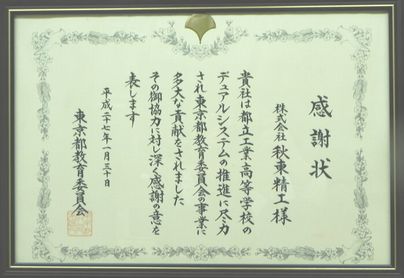 感謝状
株式会社 秋東精工様
貴社は都立工業高等学校の
デュアルシステムの推進に尽力
され東京都教育委員会の事業に
多大な貢献をされました
その御協力に対し深く感謝の意を
表します
平成二十七年一月三十日
東京都教育委員会